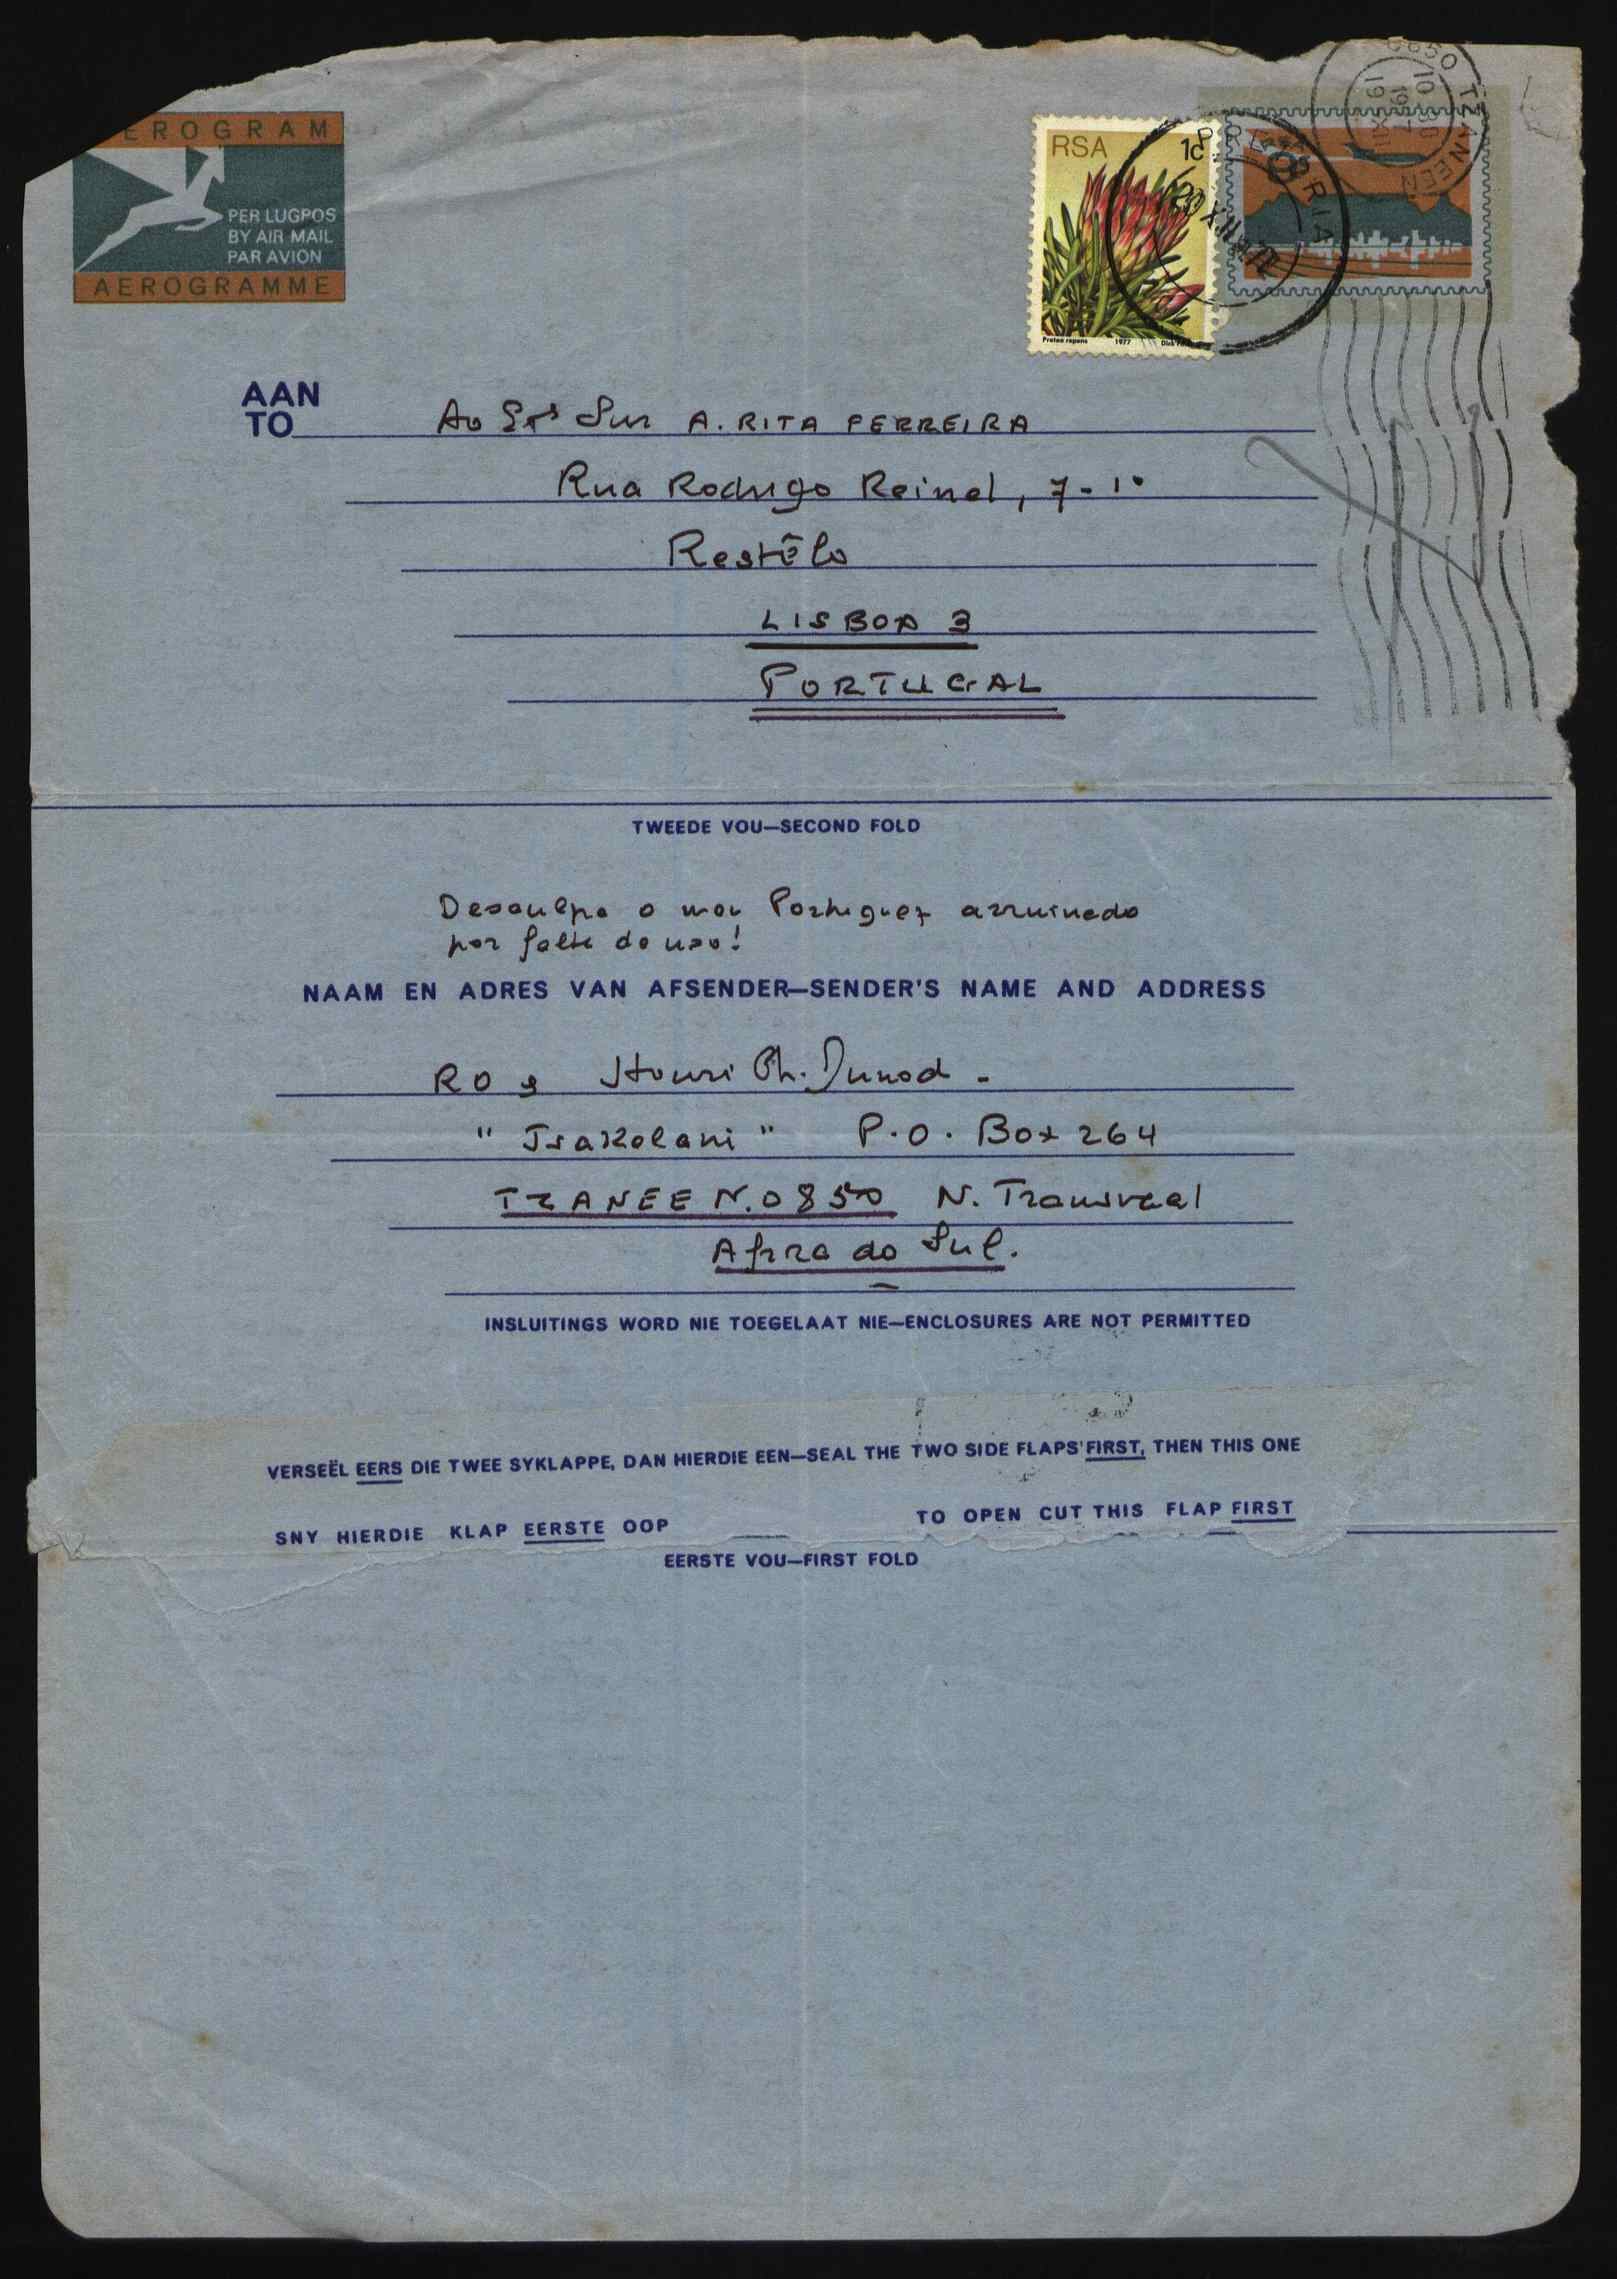 AEROGRAM
PER LUGPOS
BY AIR MAIL
PAR AVION
AEROGRAMME
RSA 1c
Protea repens 1977
PRETORIA
0850 TZANEEN
AAN
TO
Ao Sur A. RITA FERREIRA
Rua Rodrigo Reinel, 7-1º
Restêlo
LISBOA 3
PORTUGAL
TWEEDE VOU—SECOND FOLD
Desculpe o meu Portuguez arruinado
por falta do uso!
NAAM EN ADRES VAN AFSENDER—SENDER'S NAME AND ADDRESS
Henri Ph. Junod -
"Tsakelani" P.O. Box 264
TZANEEN. 0850 N. Transvaal
Afrca do Sul.
INSLUITINGS WORD NIE TOEGELAAT NIE—ENCLOSURES ARE NOT PERMITTED
VERSEËL EERS DIE TWEE SYKLAPPE, DAN HIERDIE EEN—SEAL THE TWO SIDE FLAPS FIRST, THEN THIS ONE
SNY HIERDIE KLAP EERSTE OOP TO OPEN CUT THIS FLAP FIRST
EERSTE VOU—FIRST FOLD